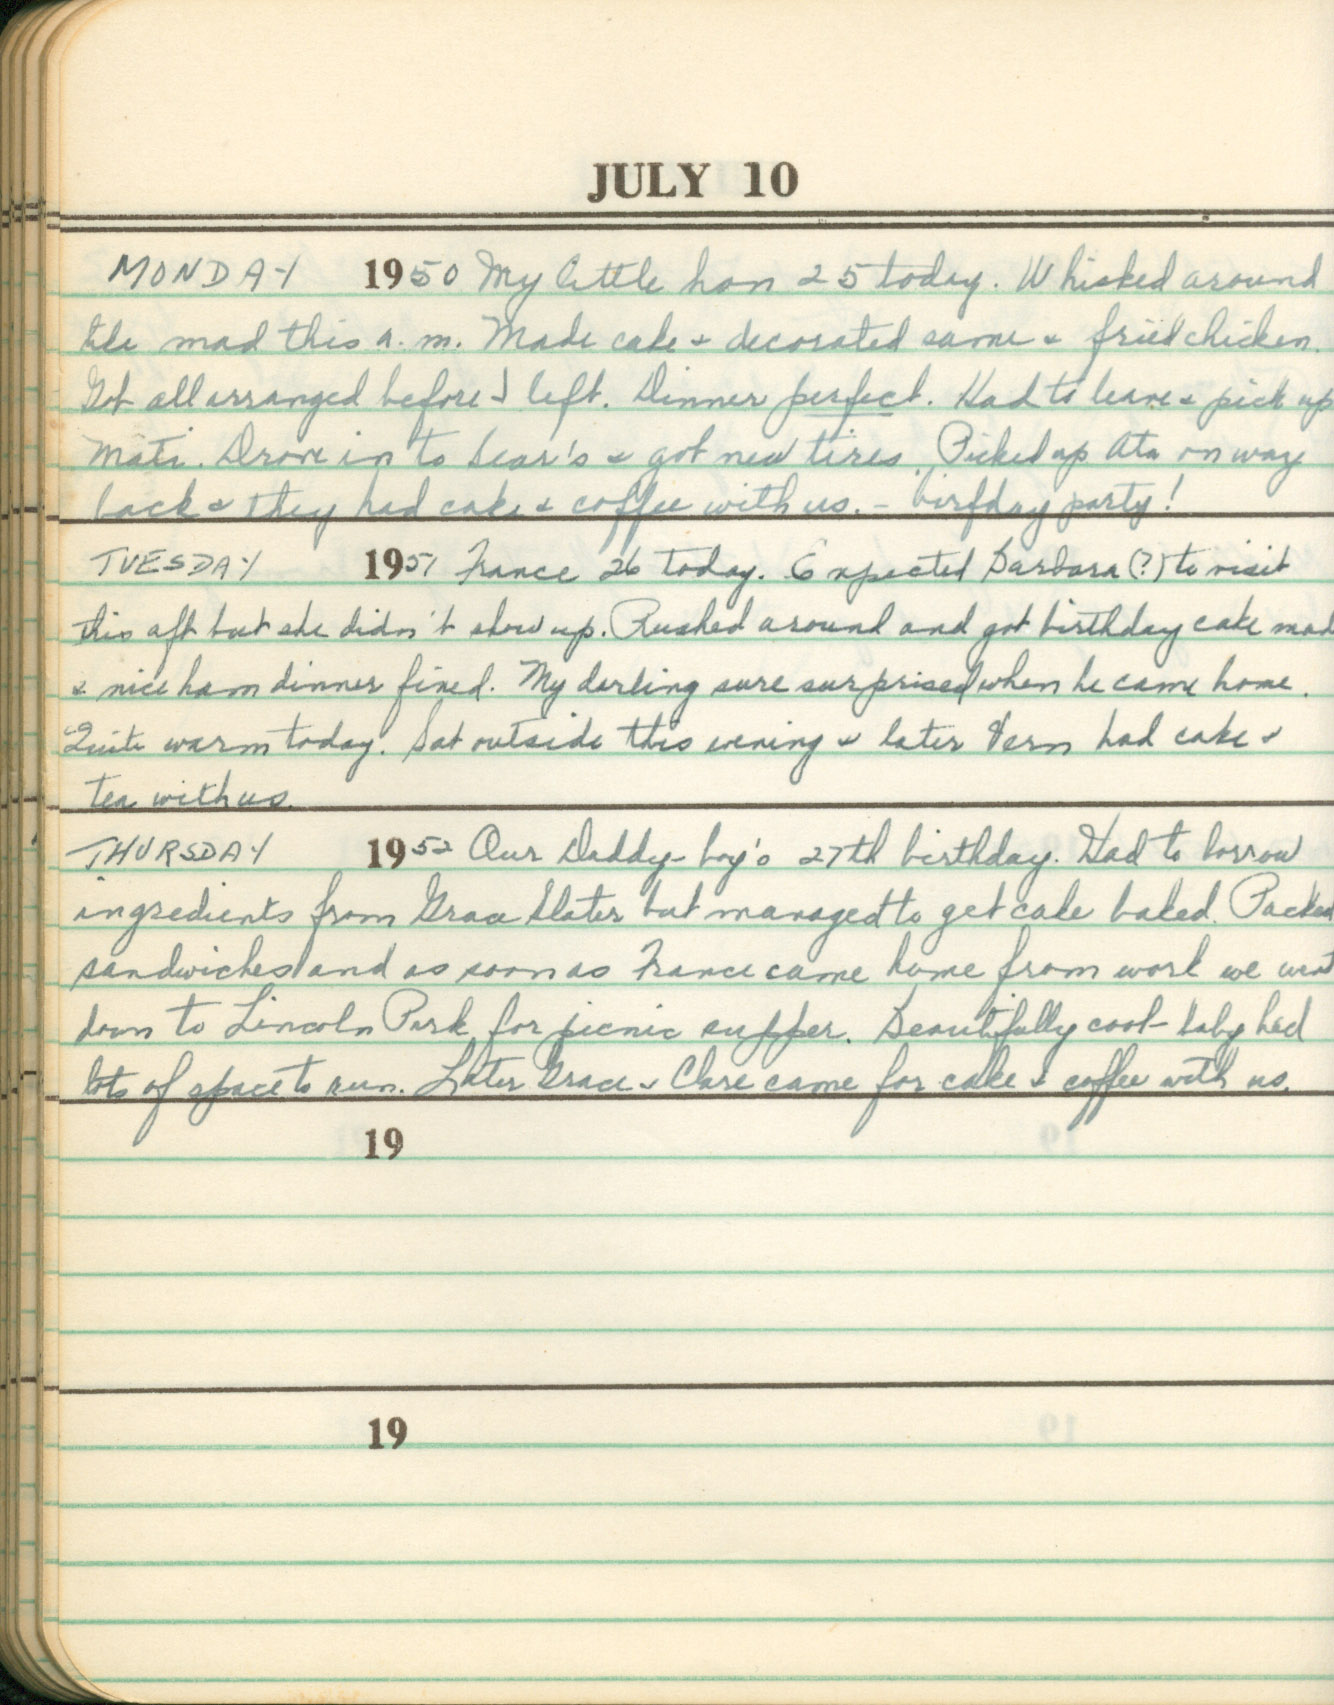 JULY 10
MONDAY 1950 My little hon 25 today. Whisked around
like mad this a.m. Made cake & decorated same & fried chicken.
Got all arranged before I left. Dinner perfect. Had to leave & pick up
Mati. Drove in to Sear's & got new tires. Picked up Ata on way
back & they had cake & coffee with us. - birfday party!
TUESDAY 1951 France 26 today. Expected Barbara (?) to visit
this aft but she didn't show up. Rushed around and got birthday cake made
& nice ham dinner fixed. My darling sure surprised when he came home.
Quite warm today. Sat outside this evening & later Vern had cake &
tea with us.
THURSDAY 1952 Our Daddy-boy's 27th birthday. Had to borrow
ingredients from Grace Slater but managed to get cake baked. Packed
sandwiches and as soon as France came home from work we went
down to Lincoln Park for picnic supper. Beautifully cool - baby had
lots of space to run. Later Grace & Clare came for cake & coffee with us.
19
19